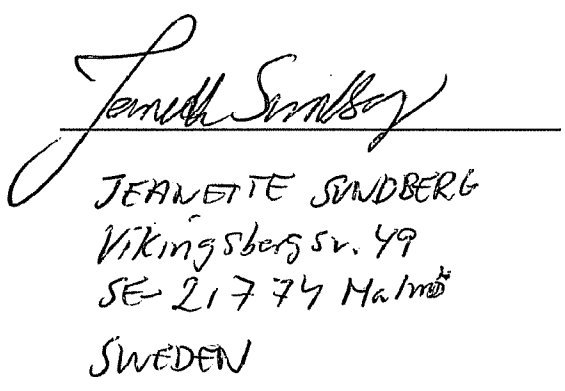 Jeanette Sundberg
JEANETTE SUNDBERG
Vikingsbergsv. 49
SE-217 74 Malmö
SWEDEN